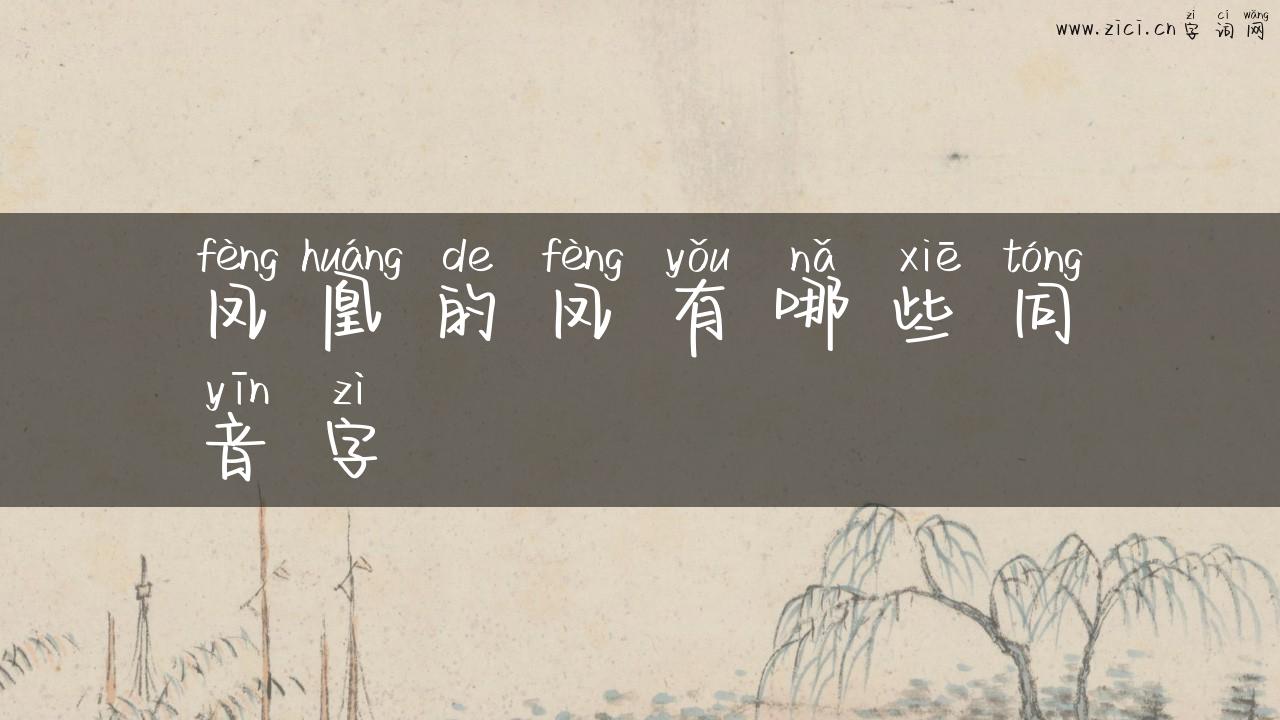 www.zici.cn 字词网
zì cí wǎng
fèng huáng de fèng yǒu nǎ xiē tóng
凤凰的凤有哪些同
yīn zì
音字